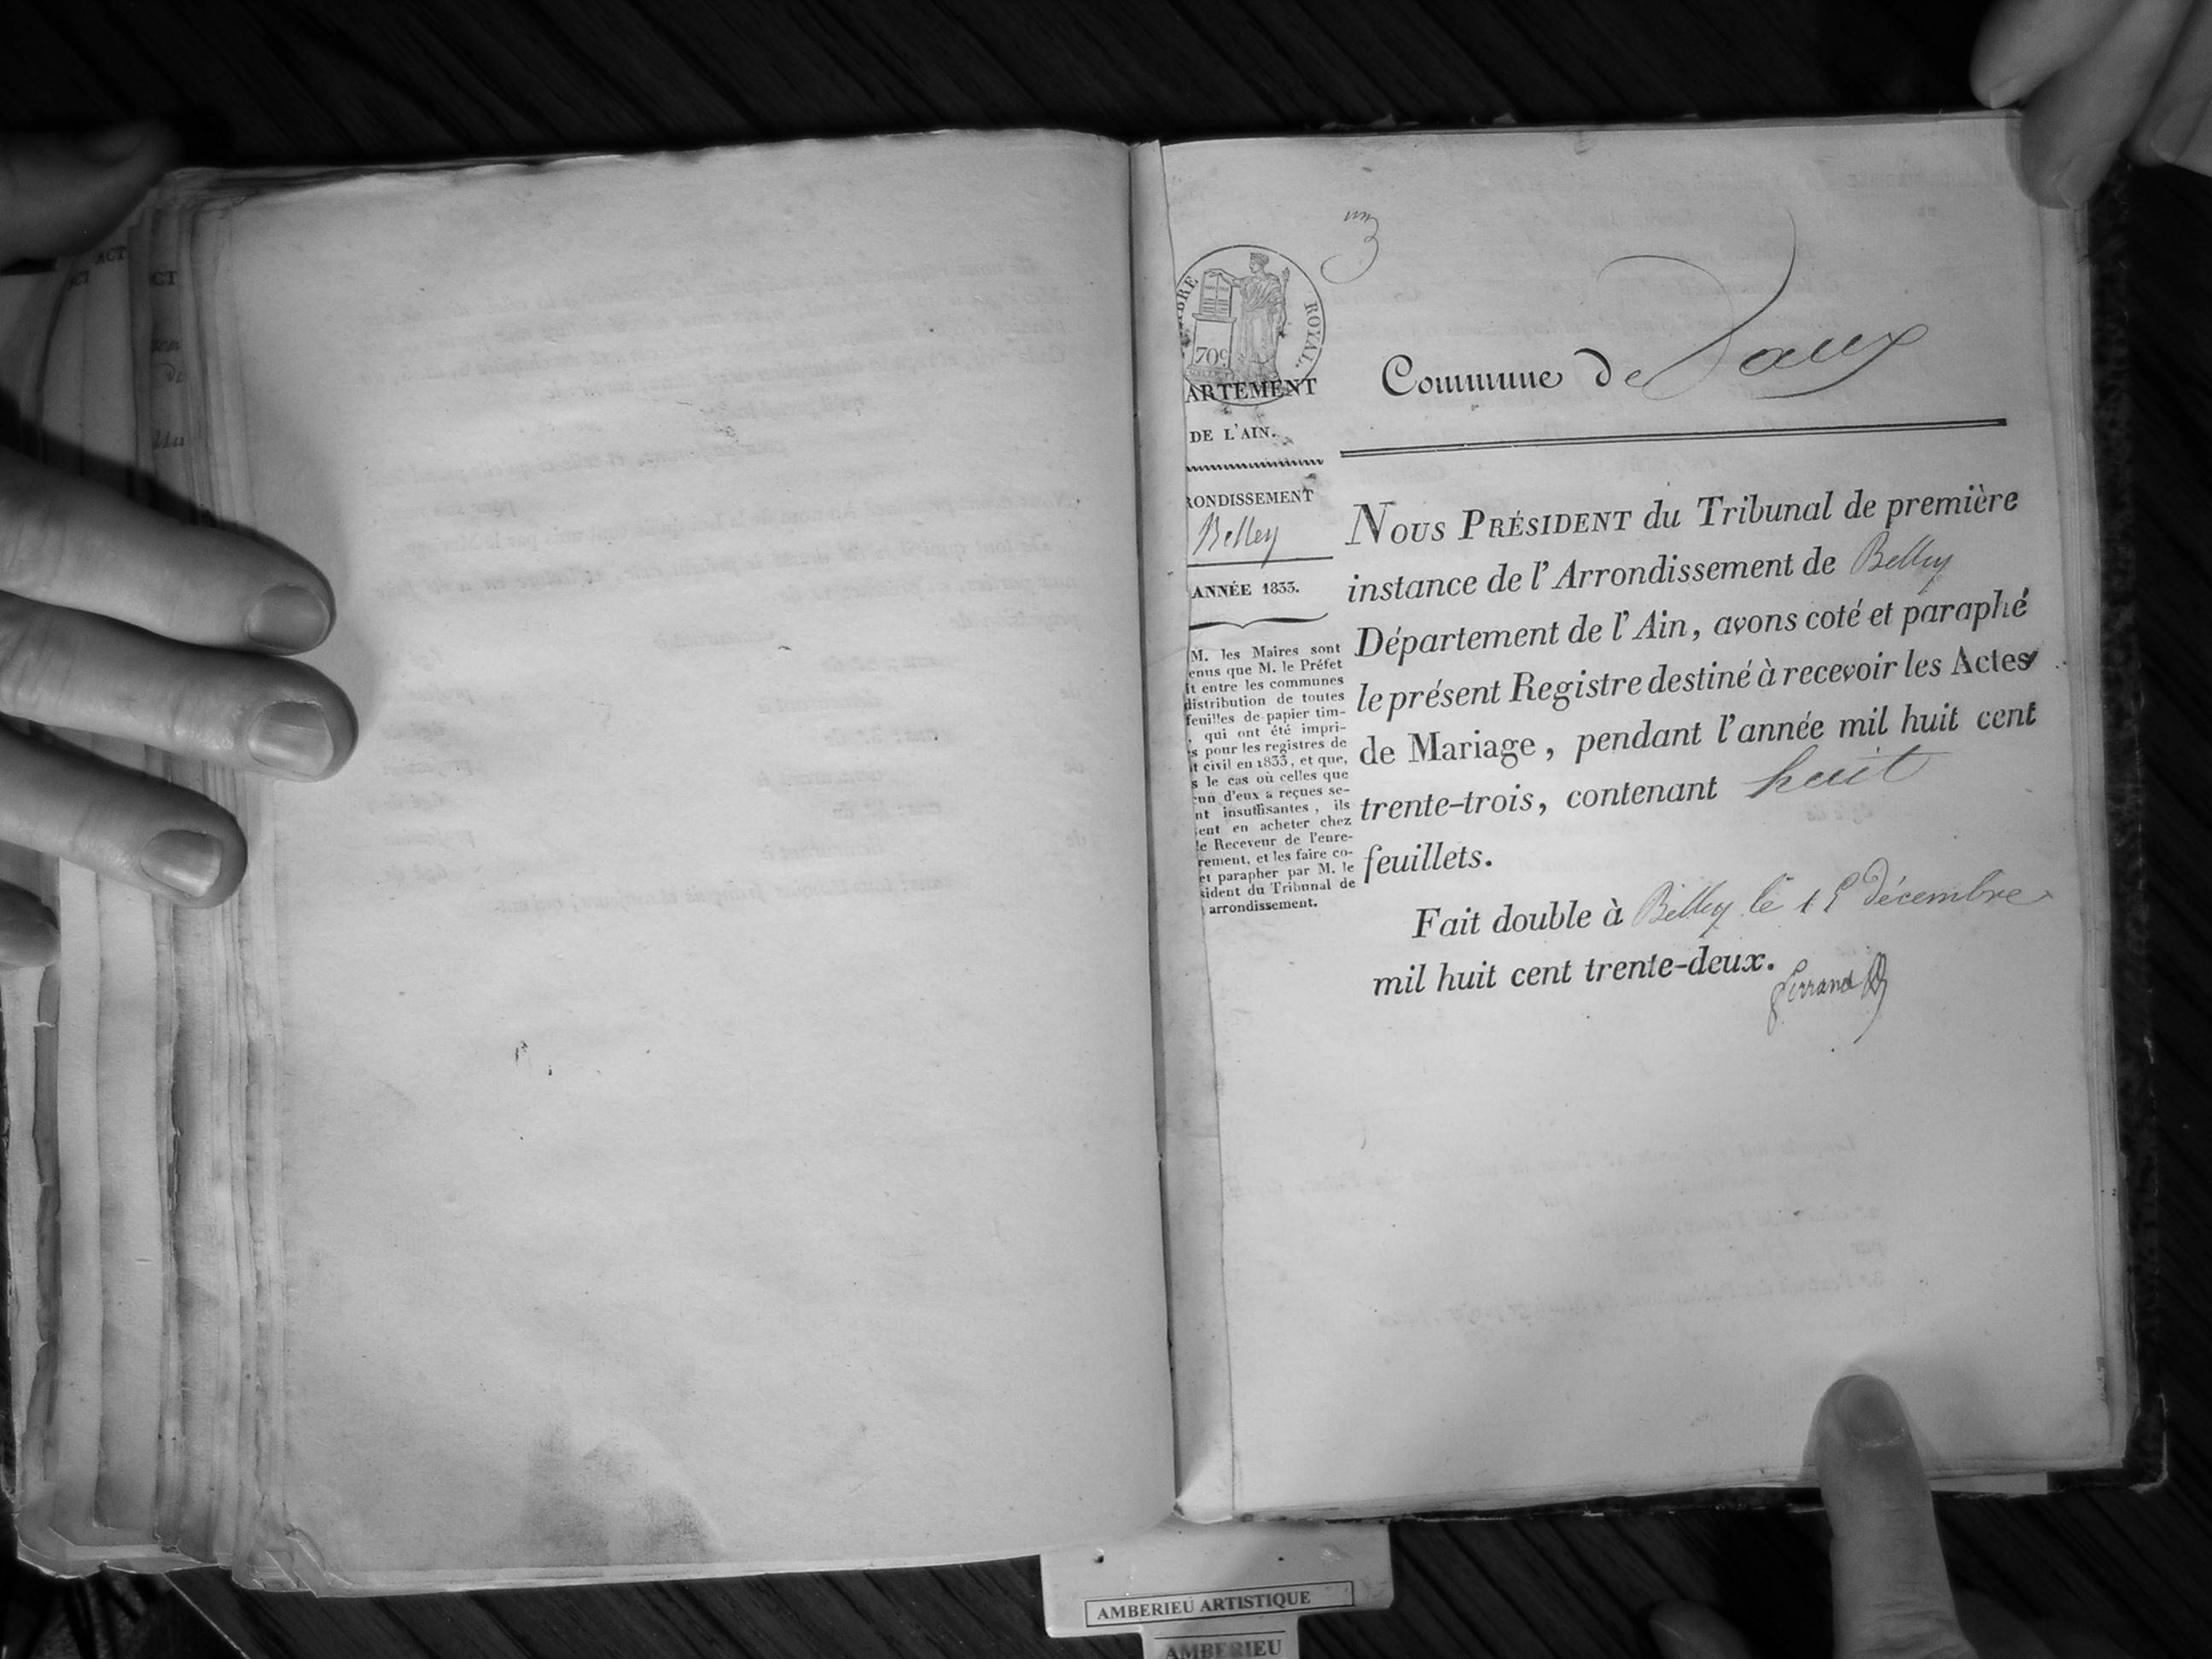 ACT
ACT
CT
un
TIMBRE ROYAL.
70c
Commune de Vaux
ARTEMENT
DE L'AIN.
RONDISSEMENT
Belley
ANNÉE 1833.
M. les Maires sont
enus que M. le Préfet
it entre les communes
distribution de toutes
feuilles de papier tim-
, qui ont été impri-
s pour les registres de
t civil en 1833, et que,
s le cas où celles que
cun d'eux a reçues se-
nt insuffisantes, ils
sent en acheter chez
le Receveur de l'enre-
rement, et les faire co-
et parapher par M. le
sident du Tribunal de
arrondissement.
NOUS PRÉSIDENT du Tribunal de première
instance de l'Arrondissement de Belley
Département de l'Ain, avons coté et paraphé
le présent Registre destiné à recevoir les Actes
de Mariage, pendant l'année mil huit cent
trente-trois, contenant huit
feuillets.
Fait double à Belley le 15 décembre
mil huit cent trente-deux.
Ferrand
AMBERIEU ARTISTIQUE
AMBERIEU